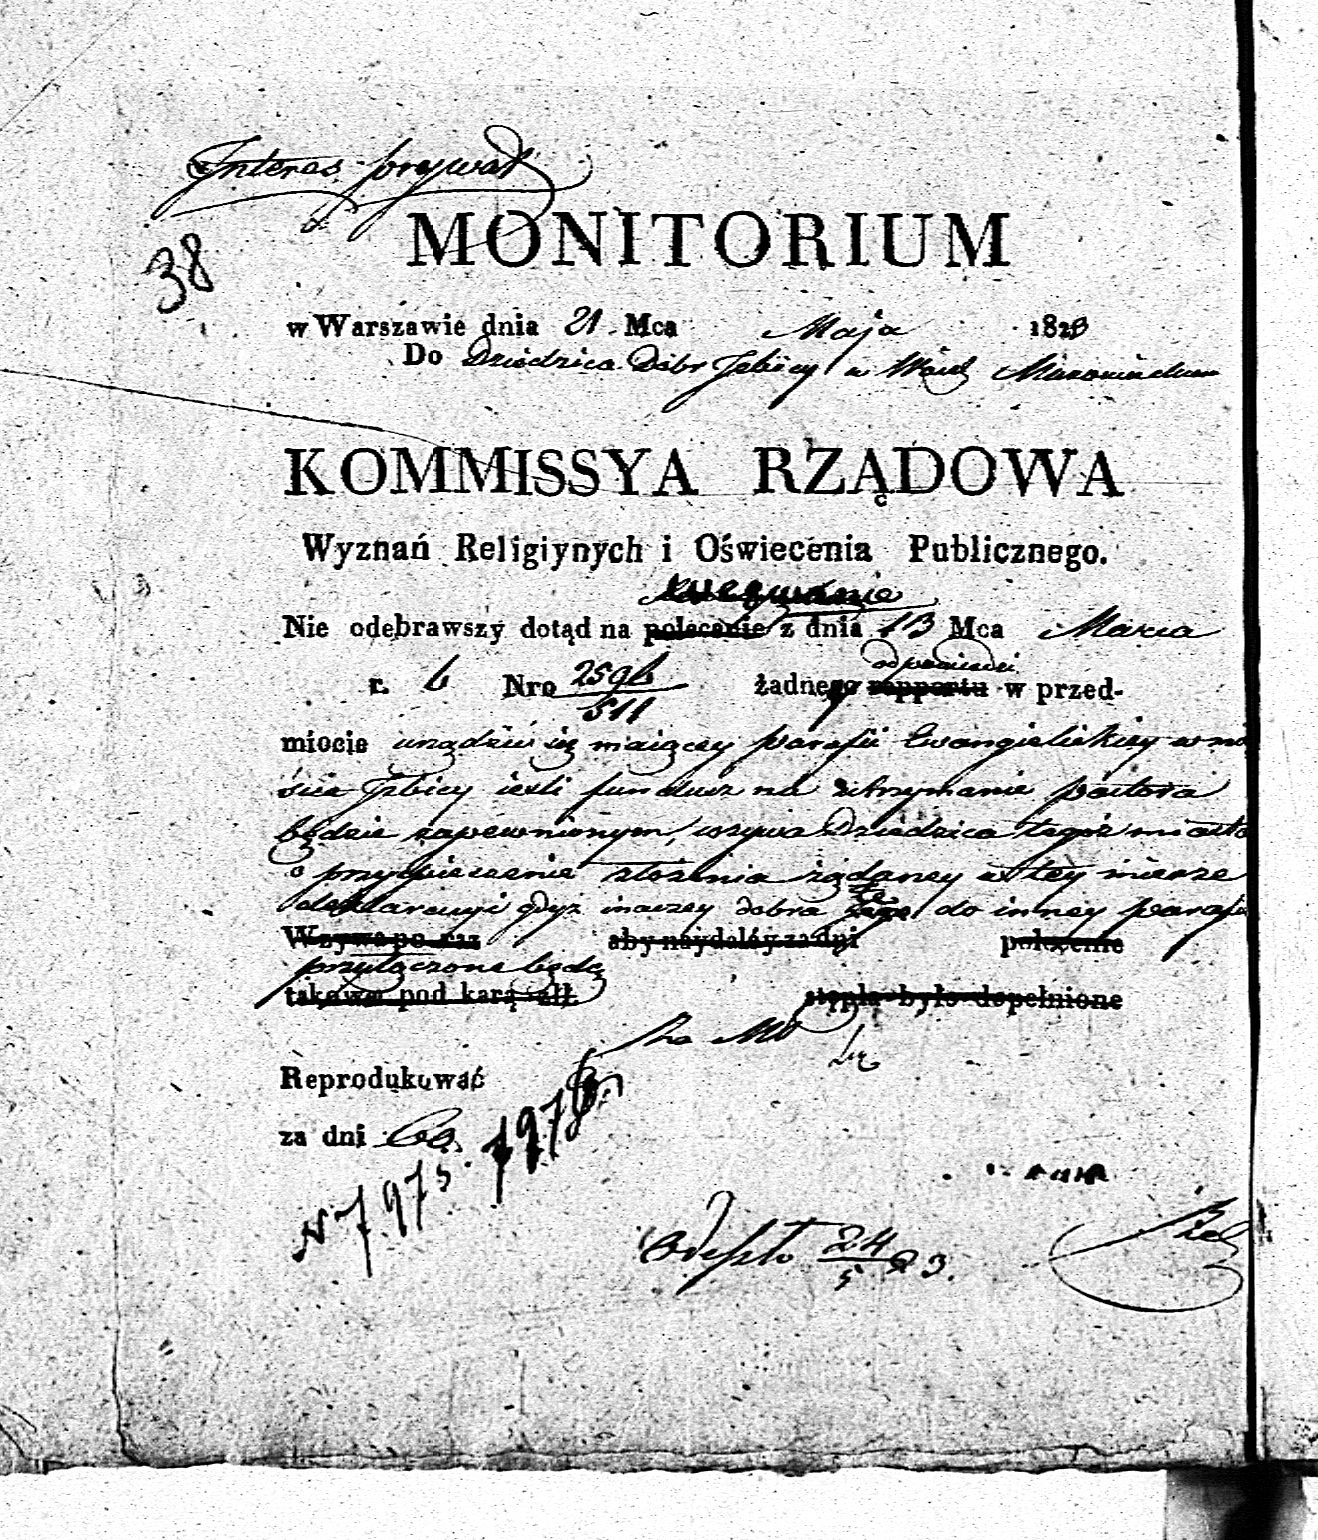 Interes prywat
38
MONITORIUM
w Warszawie dnia 21 Mca Maja 1823
Do Dziedzica Dobr Izbicy w Woiew Mazowieckim
KOMMISSYA RZĄDOWA
Wyznań Religiynych i Oświecenia Publicznego.
wezwanie
Nie odebrawszy dotąd na polecenie z dnia 13 Mca Marca
odpowiedzi
r. b Nro 2596/511 żadnego rapportu w przed-
miocie urządzić się maiącey parafii Ewangielickiey w mie
ście Izbicy ieśli fundusz na utrzymanie pastora
będzie zapewnionym, wzywa Dziedzica tegoż miasta
o przyspieszenie złożenia żądaney w tey mierze
deklaracyi gdyż inaczey dobra te do inney parafii
Wzywa po raz aby naydaléy za dni polecenie
przyłączone będą
takowe pod karą złł. stępla było dopełnione
Reprodukować
za dni 60.
N 7973. 7978
Odeszło 24/5 23.